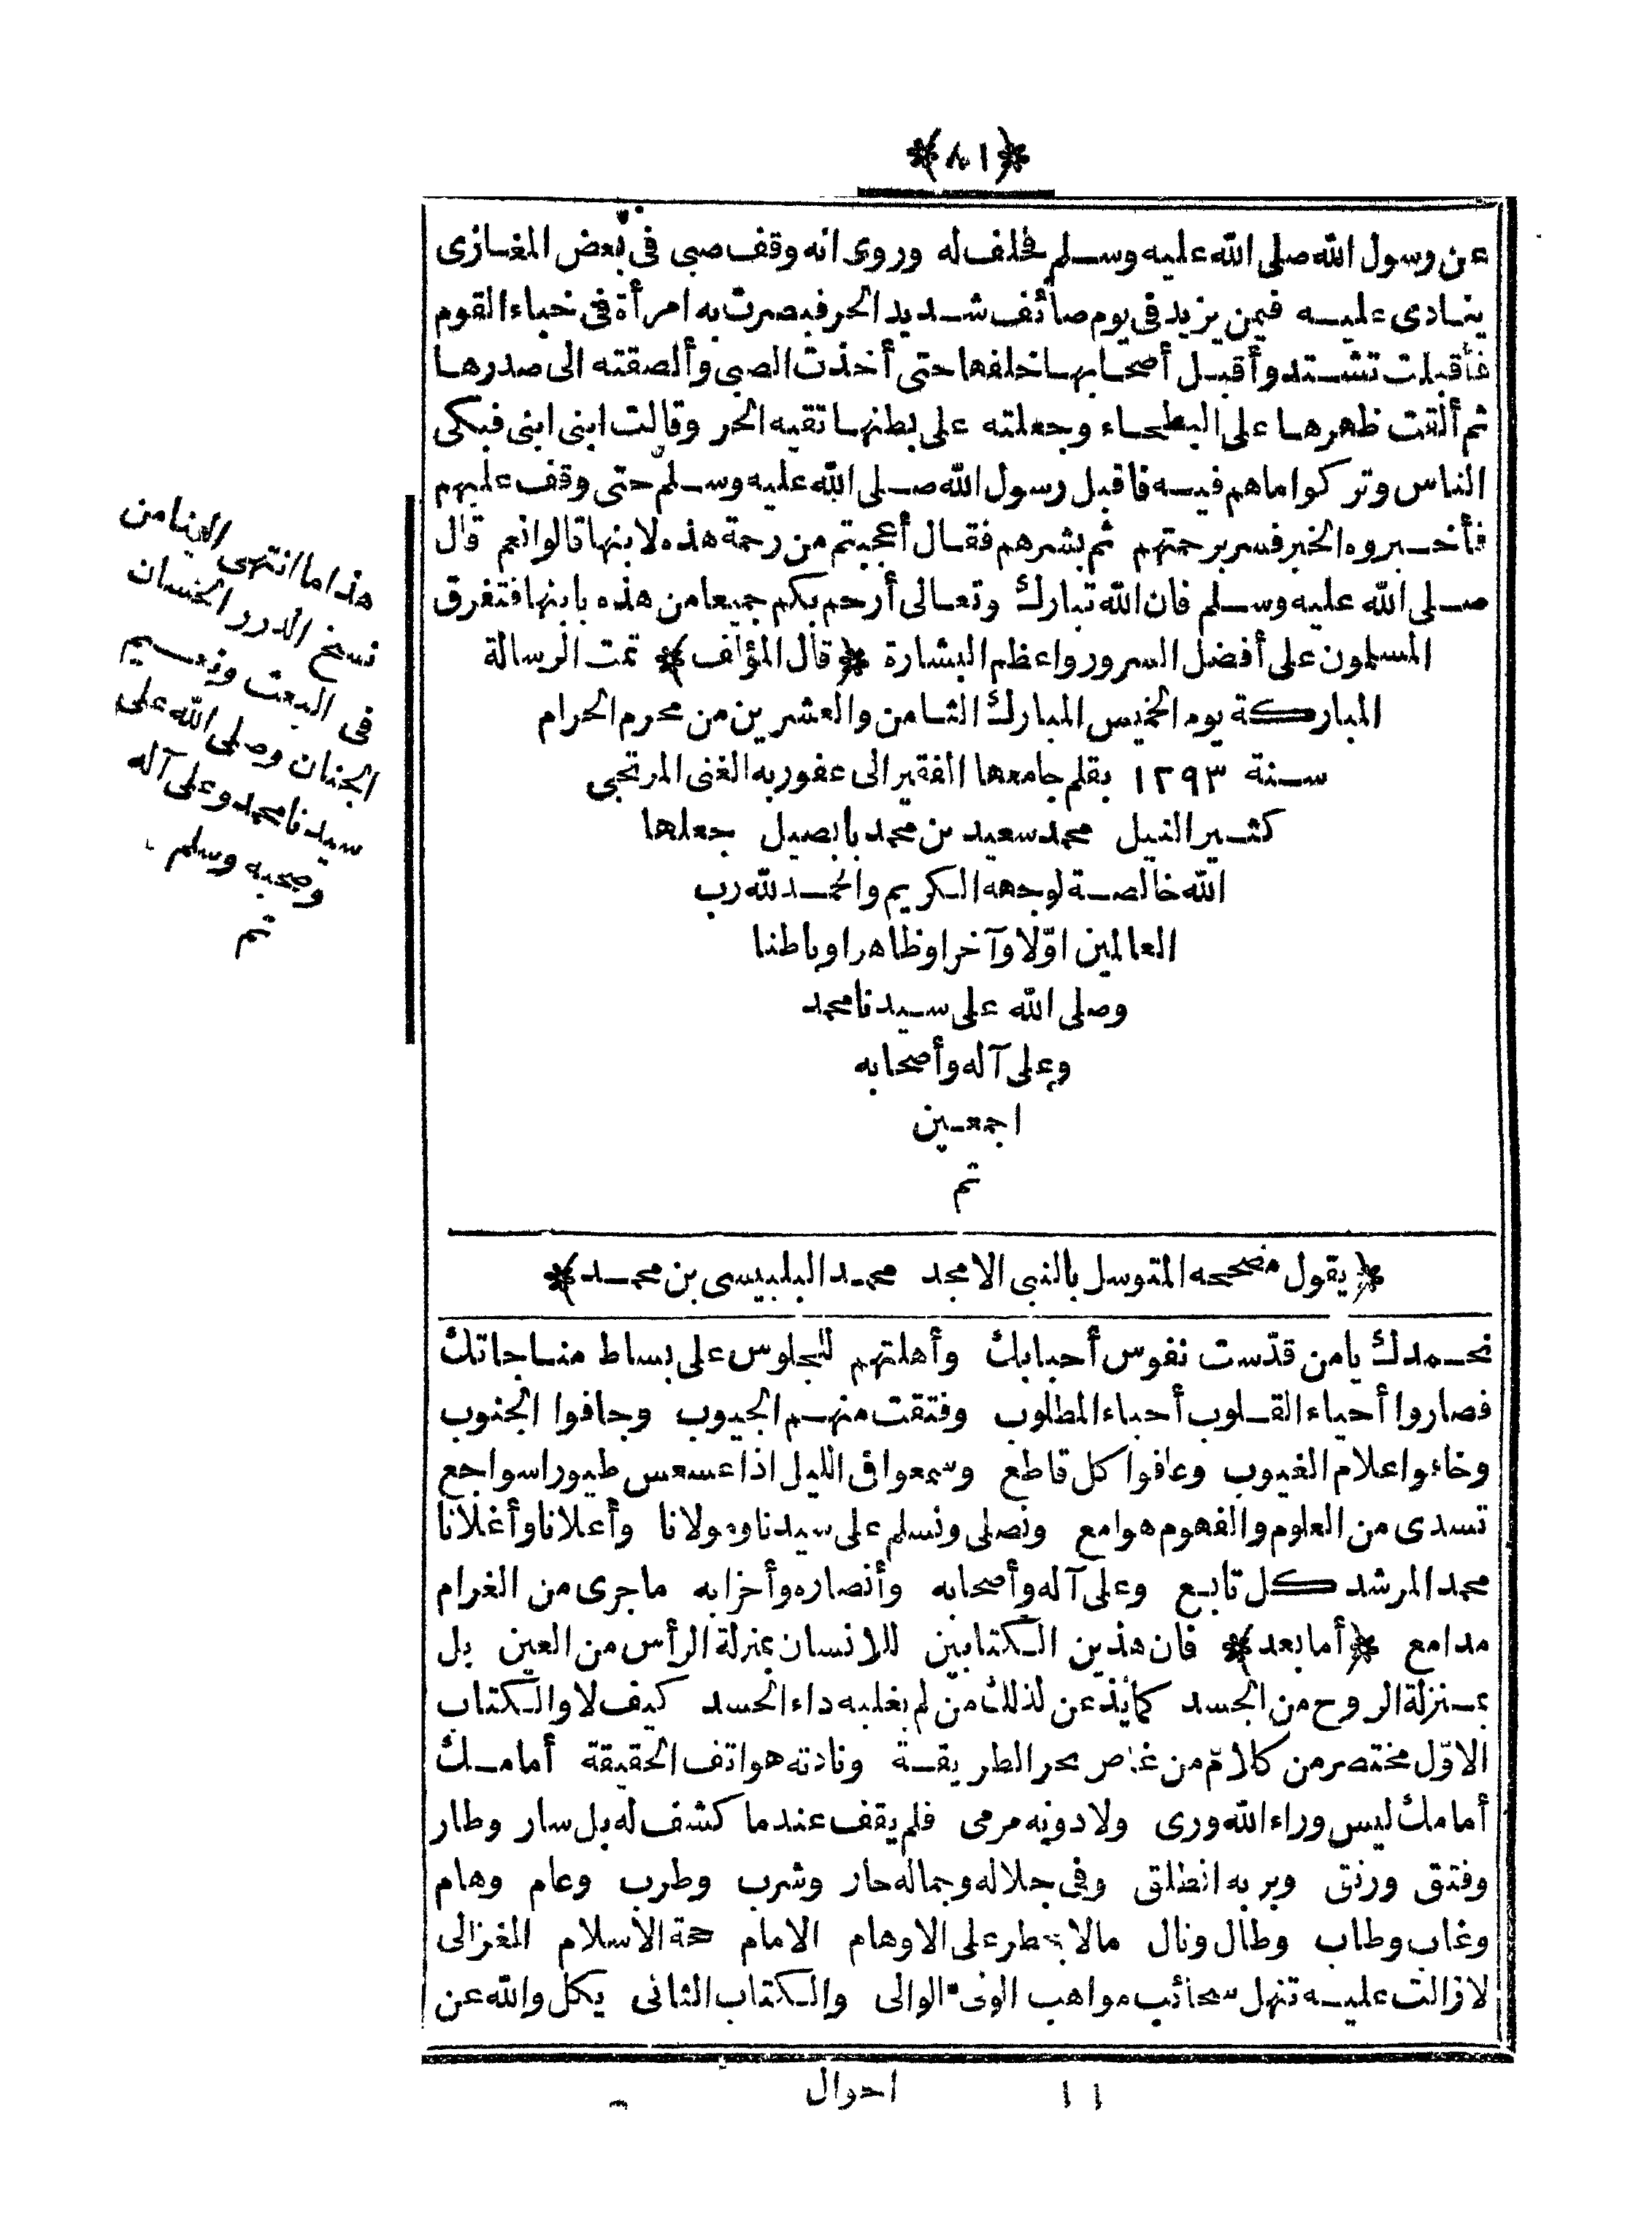 ﴿٨١﴾
عن رسول الله صلى الله عليه وسلم فحلف له وروى انه وقف صبى فى بعض المغازى
ينادى عليه فيمن يزيد فى يوم صائف شديد الحر فبصرت به امرأة فى خباء القوم
فأقبلت تشتد وأقبل أصحابها خلفها حتى أخذت الصبى وألصقته الى صدرها
ثم ألقت ظهرها على البطحاء وجعلته على بطنها تقيه الحر وقالت ابنى ابنى فبكى
الناس وتركوا ماهم فيه فاقبل رسول الله صلى الله عليه وسلم حتى وقف عليهم
فأخبروه الخبر فسر برحمتهم ثم بشرهم فقال أعجبتم من رحمة هذه لابنها قالوا نعم قال
صلى الله عليه وسلم فان الله تبارك وتعالى أرحم بكم جميعا من هذه بابنها فتفرق
المسلمون على أفضل السرور واعظم البشارة ﴿قال المؤلف﴾ تمت الرسالة
المباركة يوم الخميس المبارك الثامن والعشرين من محرم الحرام
سنة ١٢٩٣ بقلم جامعها الفقير الى عفو ربه الغنى المرتجى
كثير النيل محمد سعيد بن محمد بابصيل جعلها
الله خالصة لوجهه الكريم والحمد لله رب
العالمين اوّلا وآخرا وظاهرا وباطنا
وصلى الله على سيدنا محمد
وعلى آله وأصحابه
اجمعين
تم
هذا ما انتهى الينا من
نسخ الدرر الحسان
فى البعث ونعيم
الجنان وصلى الله على
سيدنا محمد وعلى آله
وصحبه وسلم
تم
﴿يقول مصححه المتوسل بالنبى الامجد محمد البلبيسى بن محمد﴾
نحمدك يا من قدّست نفوس أحبابك وأهلتهم للجلوس على بساط مناجاتك
فصاروا أحياء القلوب أحباء المطلوب وفتقت منهم الجيوب وجافوا الجنوب
وخافوا علام الغيوب وعافوا كل قاطع وسمعوا فى الليل اذا عسعس طيورا سواجع
تسدى من العلوم والفهوم هوامع ونصلى ونسلم على سيدنا ومولانا وأعلانا وأغلانا
محمد المرشد كل تابع وعلى آله وأصحابه وأنصاره وأحزابه ماجرى من الغرام
مدامع ﴿أما بعد﴾ فان هذين الكتابين للانسان بمنزلة الرأس من العين بل
بمنزلة الروح من الجسد كما يذعن لذلك من لم يغلبه داء الحسد كيف لا والكتاب
الاوّل مختصر من كلام من غاص بحر الطريقة ونادته هواتف الحقيقة أمامك
أمامك ليس وراء الله ورى ولا دونه مرمى فلم يقف عندما كشف له بل سار وطار
وفتق ورتق وبربه انطلق وفى جلاله وجماله حار وشرب وطرب وعام وهام
وغاب وطاب وطال ونال مالا يخطر على الاوهام الامام حجة الاسلام الغزالى
لا زالت عليه تنهل سحائب مواهب الوالى والكتاب الثانى يكل والله عن
١١ احوال